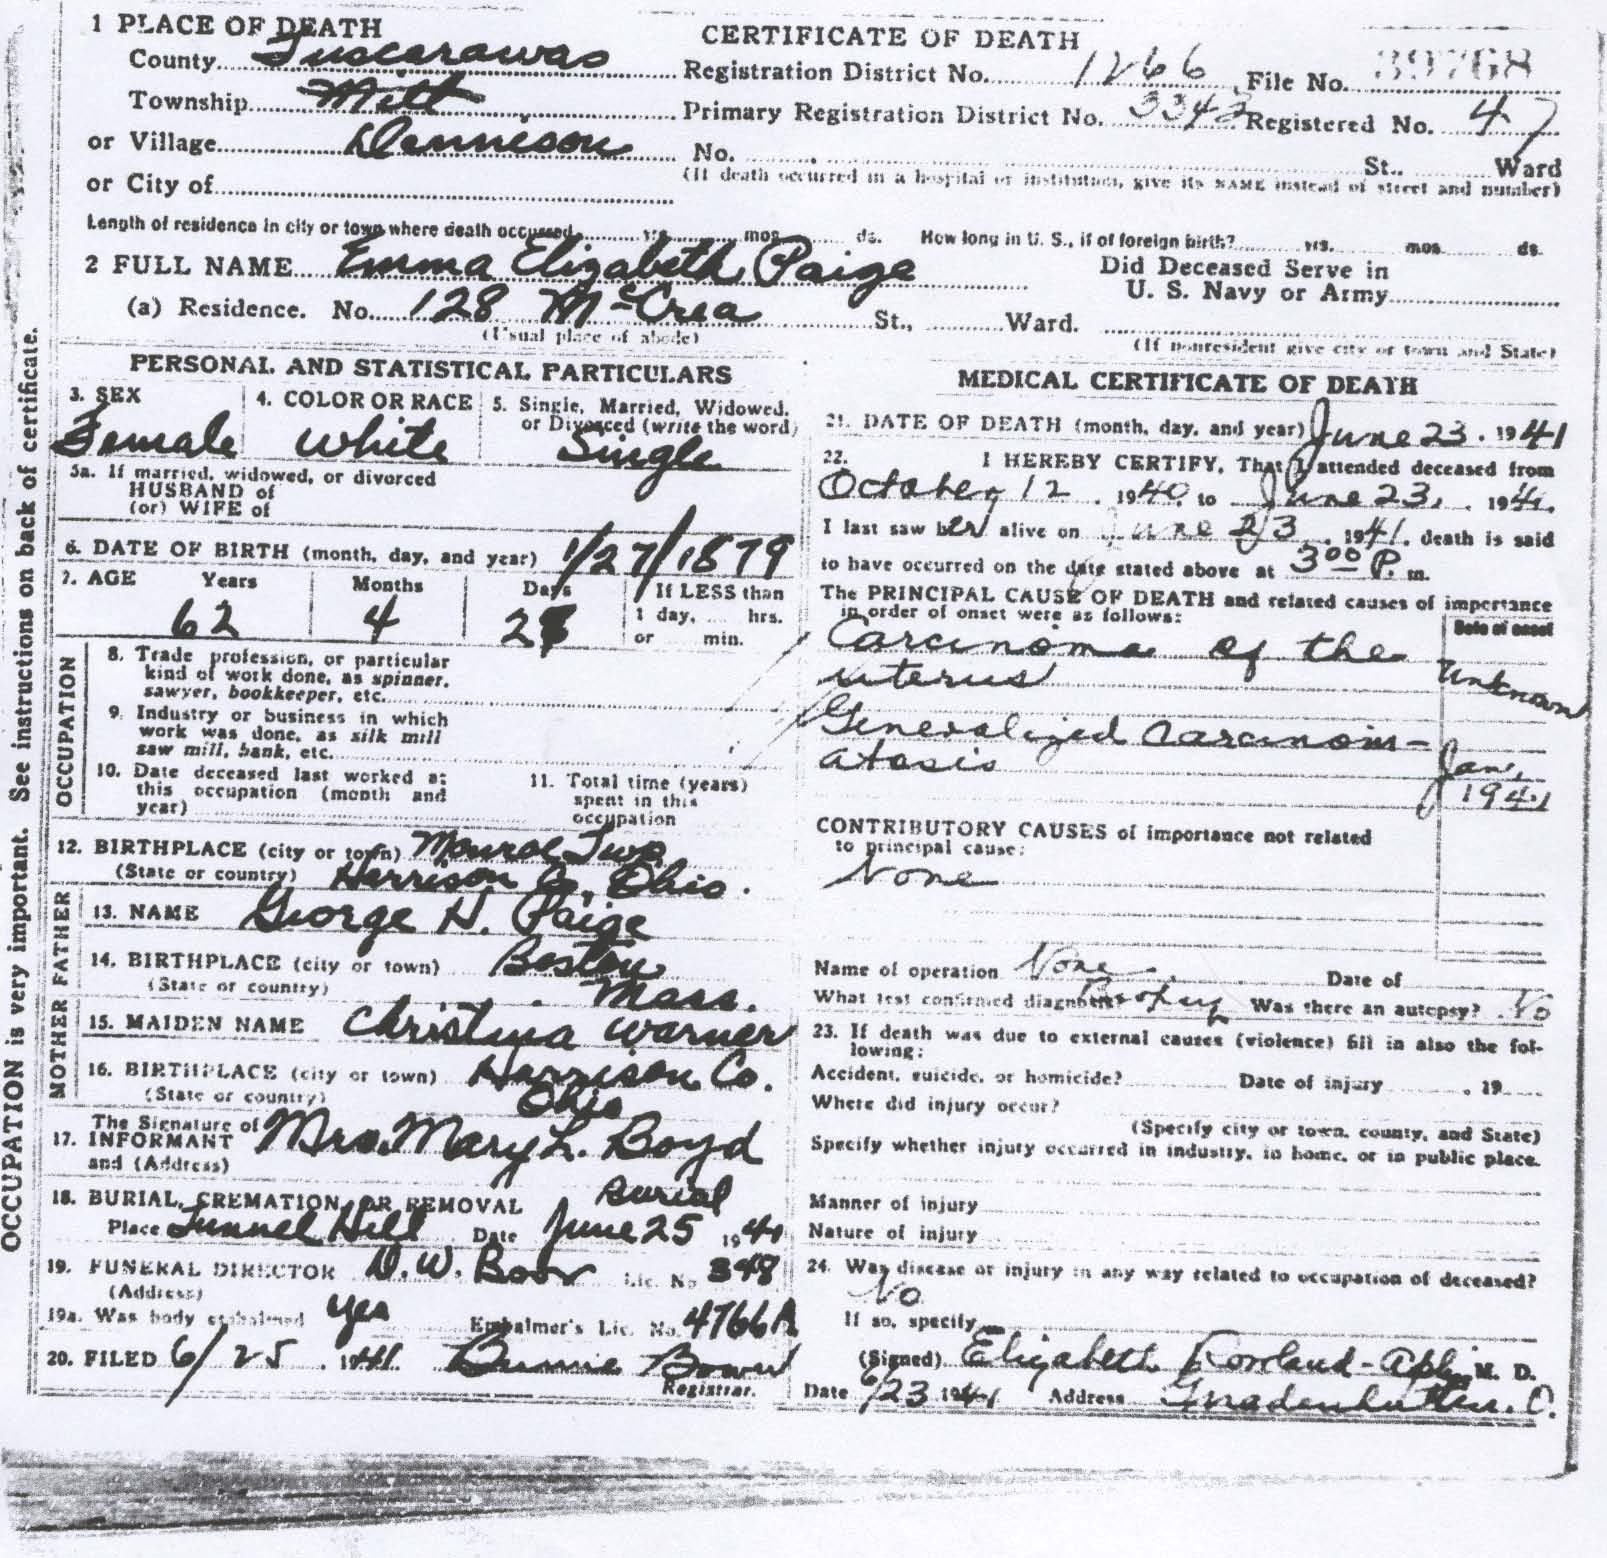 1 PLACE OF DEATH
CERTIFICATE OF DEATH
County Tuscarawas
Registration District No. 1266 File No. 39768
Township Mill
Primary Registration District No. 3342 Registered No. 47
or Village Dennison
No. St., Ward
(If death occurred in a hospital or institution, give its NAME instead of street and number)
or City of
Length of residence in city or town where death occurred yrs. mos. ds. How long in U. S., if of foreign birth? yrs. mos. ds.
2 FULL NAME Emma Elizabeth Paige
Did Deceased Serve in
U. S. Navy or Army
(a) Residence. No. 128 McCrea St., Ward.
(Usual place of abode)
(If nonresident give city or town and State)
PERSONAL AND STATISTICAL PARTICULARS
3. SEX 4. COLOR OR RACE 5. Single, Married, Widowed,
or Divorced (write the word)
Female White Single
5a. If married, widowed, or divorced
HUSBAND of
(or) WIFE of
6. DATE OF BIRTH (month, day, and year) 1/27/1879
7. AGE Years Months Days If LESS than
1 day, hrs.
or min.
62 4 2
8. Trade profession, or particular
kind of work done, as spinner,
sawyer, bookkeeper, etc.
9. Industry or business in which
work was done, as silk mill
saw mill, bank, etc.
10. Date deceased last worked at
this occupation (month and
year)
11. Total time (years)
spent in this
occupation
OCCUPATION
12. BIRTHPLACE (city or town) Monroe Twp
(State or country) Harrison Co. Ohio.
FATHER
13. NAME George H. Paige
14. BIRTHPLACE (city or town) Boston
(State or country) Mass.
MOTHER
15. MAIDEN NAME Christina Warner
16. BIRTHPLACE (city or town) Harrison Co.
(State or country) Ohio
The Signature of
17. INFORMANT Mrs. Mary L. Boyd
and (Address)
18. BURIAL, CREMATION, OR REMOVAL Burial
Place Tunnel Hill Date June 25 1941
19. FUNERAL DIRECTOR D. W. Boor Lic. No 348
(Address)
19a. Was body embalmed yes Embalmer's Lic. No. 4766A
20. FILED 6/25, 1941
Registrar.
OCCUPATION is very important. See instructions on back of certificate.
MEDICAL CERTIFICATE OF DEATH
21. DATE OF DEATH (month, day, and year) June 23, 1941
22. I HEREBY CERTIFY, That I attended deceased from
October 12, 1940, to June 23, 1941.
I last saw her alive on June 23, 1941, death is said
to have occurred on the date stated above at 3:00 P. m.
The PRINCIPAL CAUSE OF DEATH and related causes of importance
in order of onset were as follows:
Date of onset
Carcinoma of the
uterus Unknown
Generalized Carcinom-
atosis Jan,
1941
CONTRIBUTORY CAUSES of importance not related
to principal cause:
None
Name of operation None Date of
What test confirmed diagnosis? Biopsy Was there an autopsy? No
23. If death was due to external causes (violence) fill in also the fol-
lowing:
Accident, suicide, or homicide? Date of injury , 19
Where did injury occur?
(Specify city or town, county, and State)
Specify whether injury occurred in industry, in home, or in public place.
Manner of injury
Nature of injury
24. Was disease or injury in any way related to occupation of deceased?
No
If so, specify
(Signed) Elizabeth Rowland-Aplin, M. D.
Date 6/23 1941 Address Gnadenhutten, O.